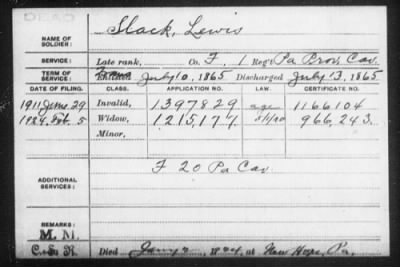 DEAD
NAME OF SOLDIER: Slack, Lewis
SERVICE: Late rank, Co. F, 1 Reg't Pa Prov. Cav.
TERM OF SERVICE: Enlisted July 10, 1865 Discharged July 13, 1865
DATE OF FILING. CLASS. APPLICATION NO. LAW. CERTIFICATE NO.
1911 June 29 Invalid, 1397829 age 1166104
1924 Feb. 5 Widow, 1215,177 966,243.
Minor,
ADDITIONAL SERVICES: F 20 Pa Cav.
REMARKS:
M. M.
C. S. R. Died 1924, at New Hope, Pa,